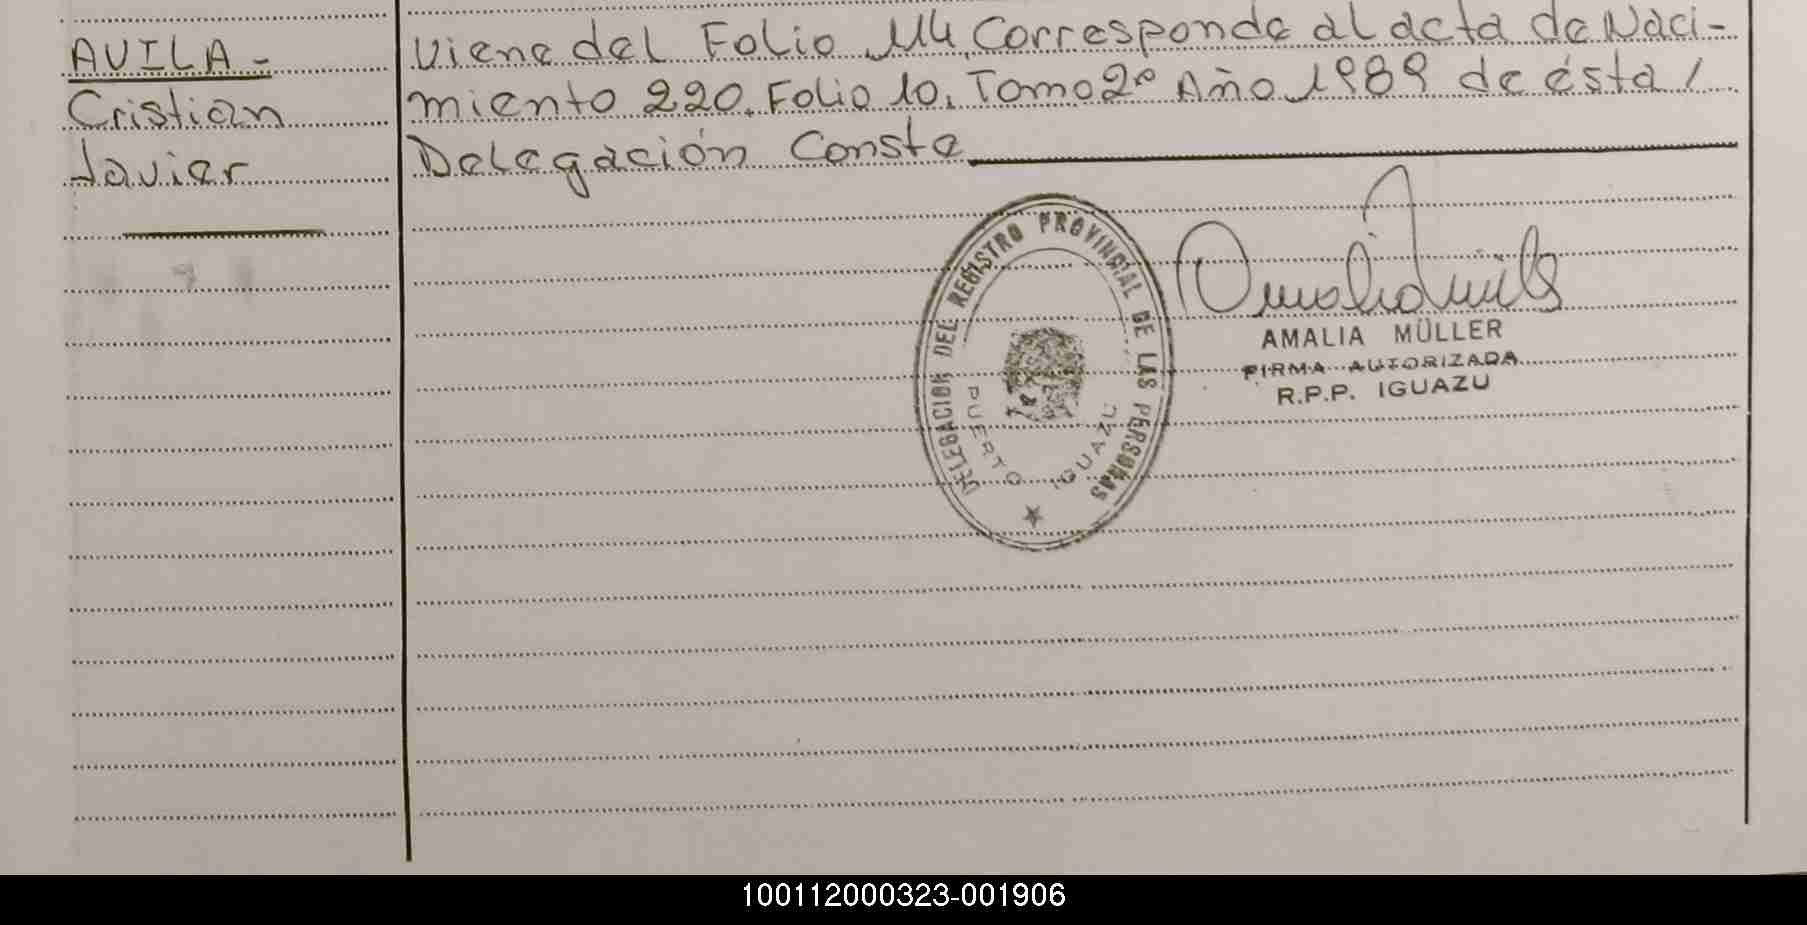 AVILA-
Cristian
Javier
Viene del Folio 114, Corresponde al acta de Naci-
miento 220. Folio 10. Tomo 2º Año 1989 de ésta /
Delegación Conste
DELEGACION DEL REGISTRO PROVINCIAL DE LAS PERSONAS
PUERTO IGUAZU
AMALIA MÜLLER
FIRMA AUTORIZADA
R.P.P. IGUAZU
100112000323-001906